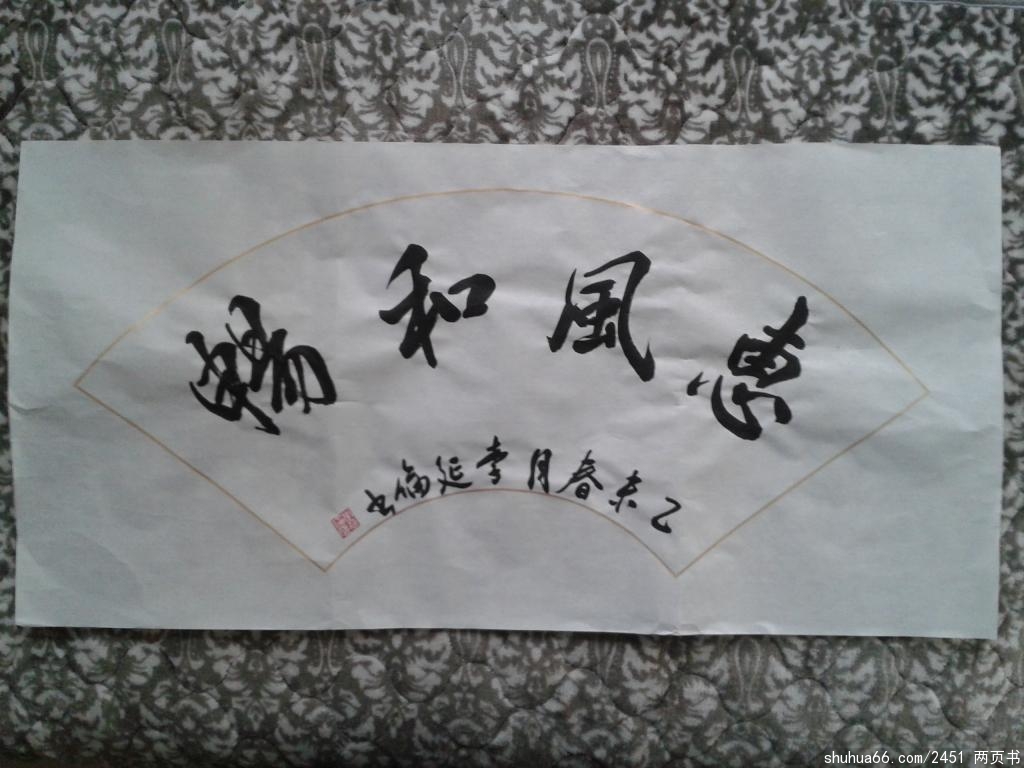 惠風和暢
乙未春月李延福书
shuhua66.com/2451 两页书